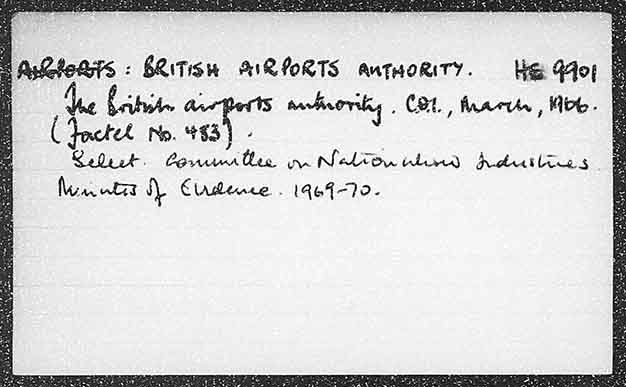 AIRPORTS : BRITISH AIRPORTS AUTHORITY. HE 9901
The British airports authority. C.O.I., March, 1966.
(Factel No. 483).
Select. Committee on Nationalised Industries
Minutes of Evidence. 1969-70.